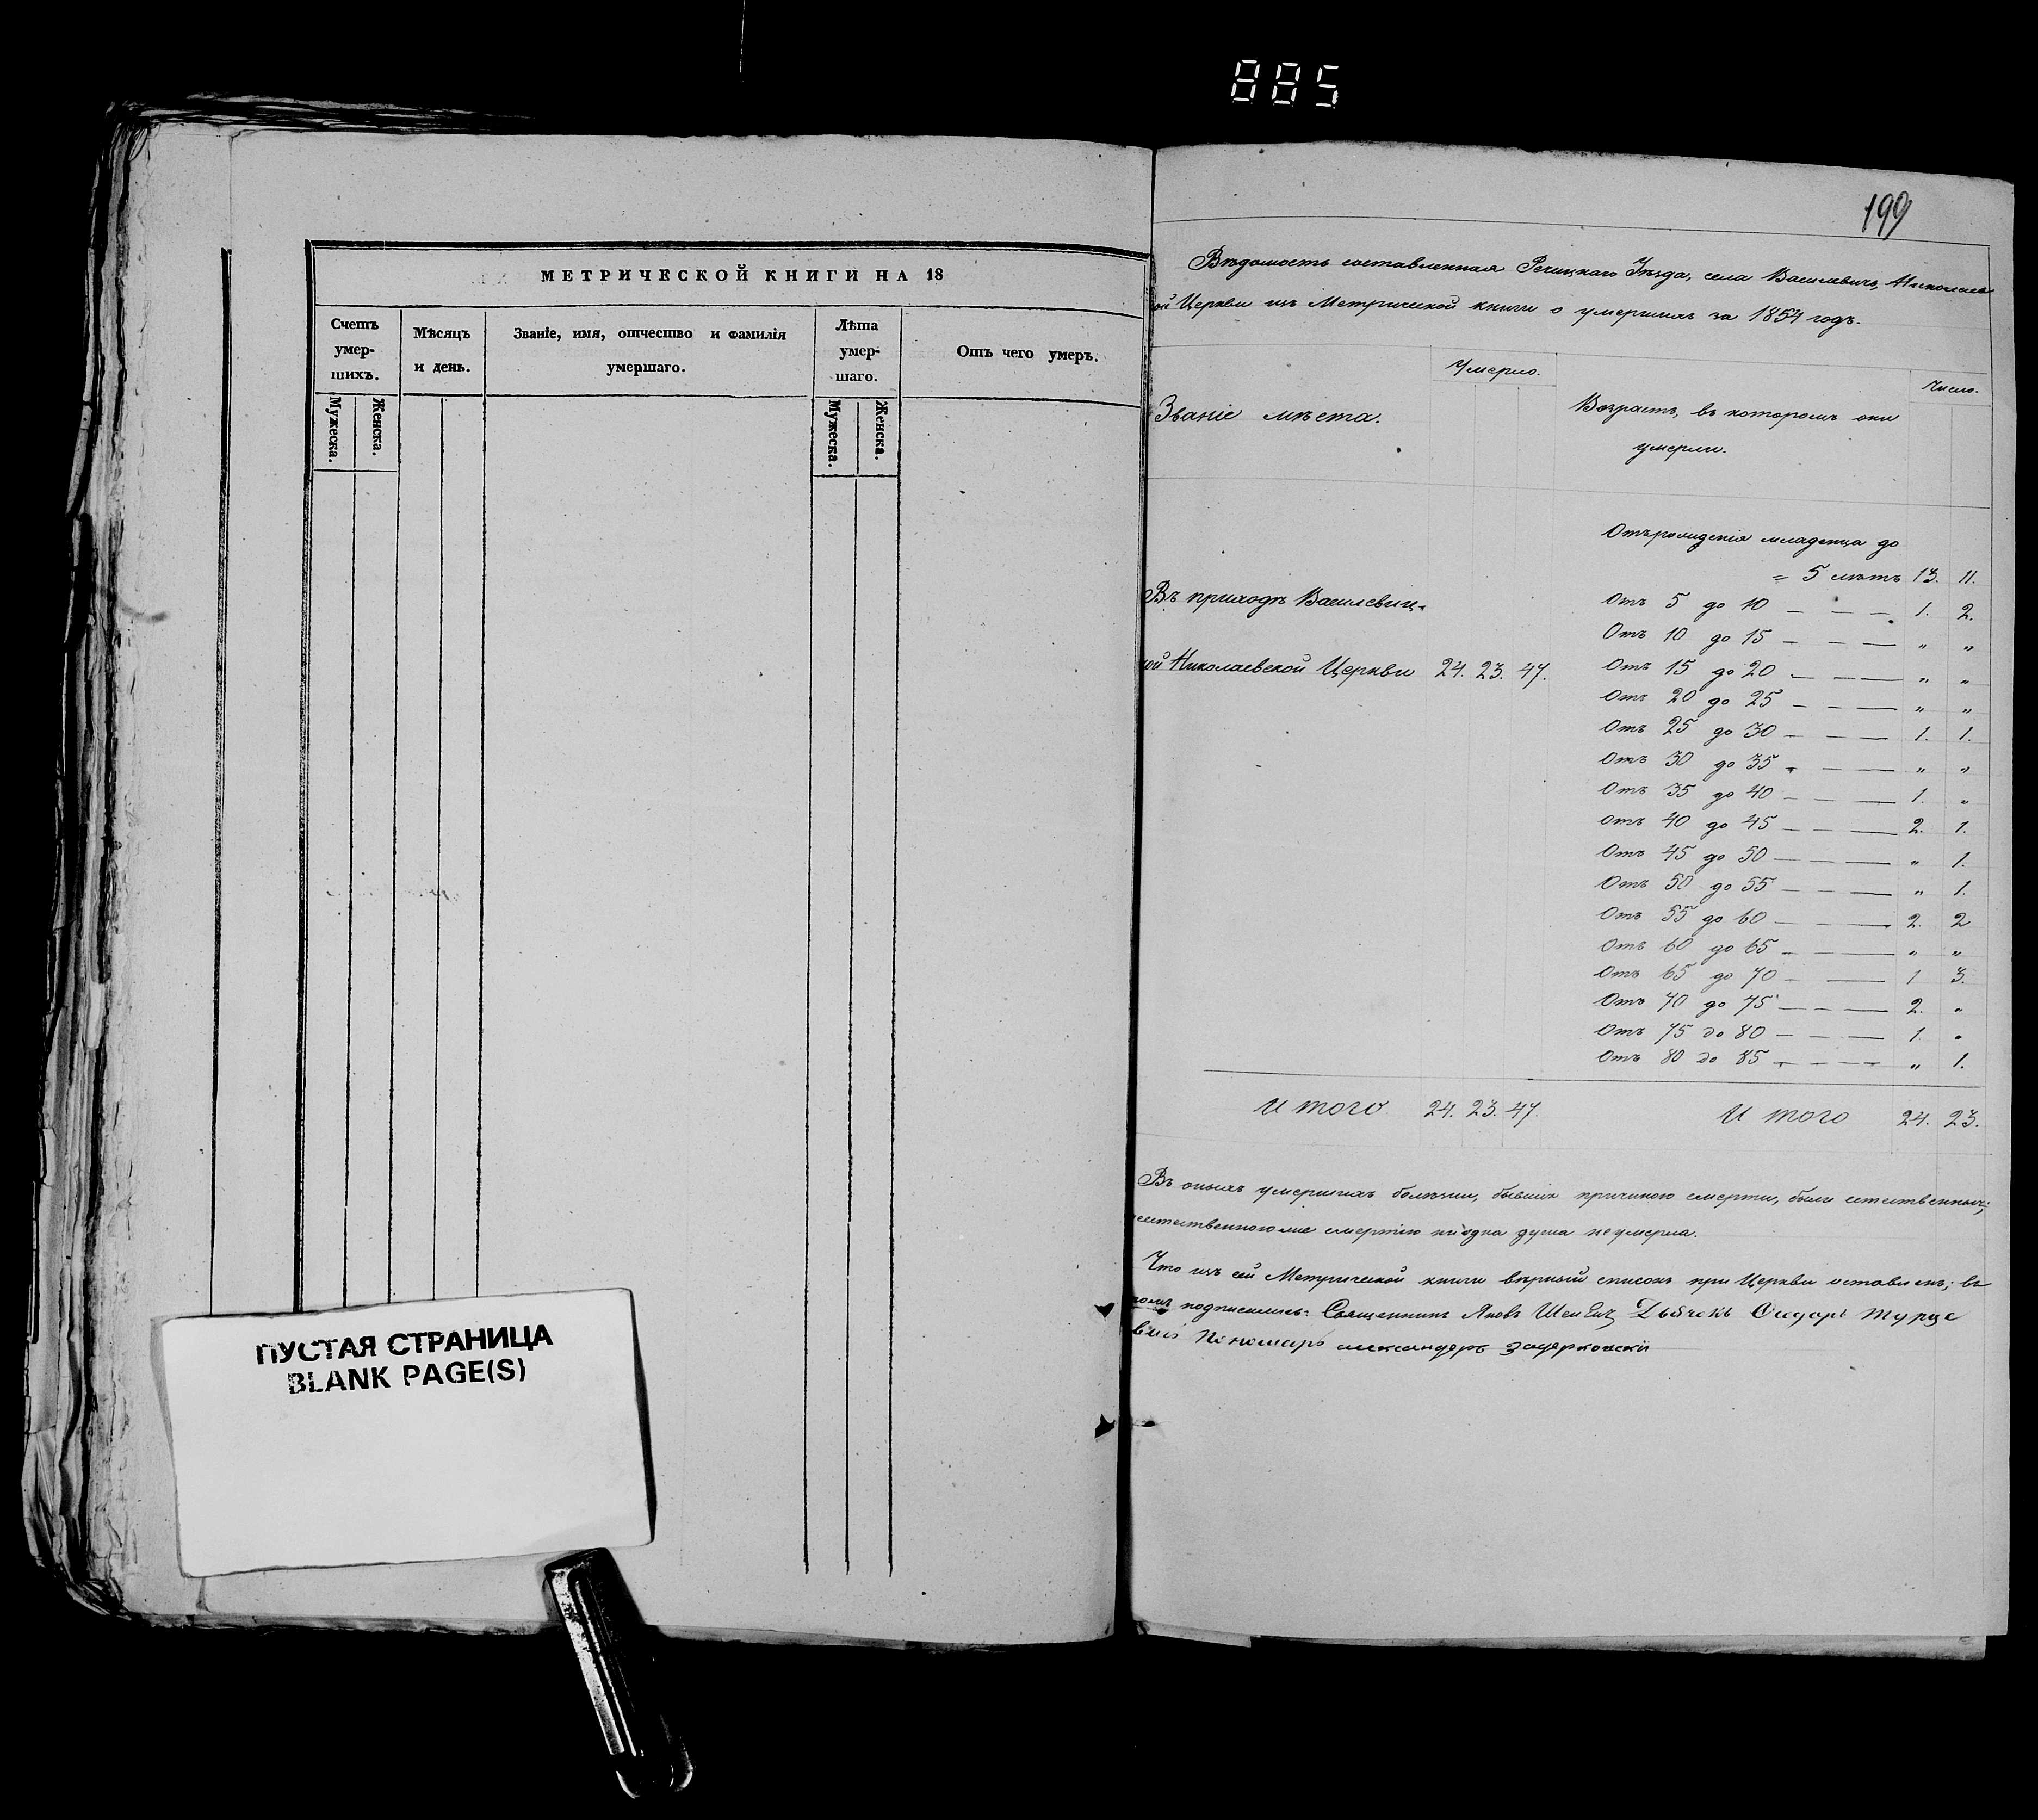 885
МЕТРИЧЕСКОЙ КНИГИ НА 18
Счетъ умер-шихъ.
Мѣсяцъ и день.
Званіе, имя, отчество и фамилія умершаго.
Лѣта умер-шаго.
Отъ чего умеръ.
Мужеска.
Женска.
Мужеска.
Женска.
ПУСТАЯ СТРАНИЦА
BLANK PAGE(S)
199
Вѣдомость составленная Речицкаго Уѣзда, села Василевичъ, Николаев
ой Церкви изъ Метрической книги о умершихъ за 1854 годъ.
Званіе мѣста.
Умерло.
Возрастъ, въ которомъ они
умерли.
Число.
Отъ рожденія младенца до
= 5 лѣтъ 13. 11.
Въ приходѣ Василевиц-
кой Николаевской Церкви 24. 23. 47.
Отъ 5 до 10 — — — 1. 2.
Отъ 10 до 15 — — — „ „
Отъ 15 до 20 — — — „ „
Отъ 20 до 25 — — — „ „
Отъ 25 до 30 — — — 1. 1.
Отъ 30 до 35 — — — „ „
Отъ 35 до 40 — — — 1. „
Отъ 40 до 45 — — — 2. 1.
Отъ 45 до 50 — — — „ 1.
Отъ 50 до 55 — — — „ 1.
Отъ 55 до 60 — — — 2. 2
Отъ 60 до 65 — — — „ „
Отъ 65 до 70 — — 1 3.
Отъ 70 до 75 — — — 2. „
Отъ 75 до 80 — — — 1. „
Отъ 80 до 85 — — — „ 1.
И того 24. 23. 47. И того 24. 23.
Въ оныхъ умершихъ болѣзни, бывшія причиною смерти, были естественныя;
естественною же смертію ни одна душа не умерла.
Что изъ сей Метрической книги вѣрный списокъ при Церкви оставленъ; въ
томъ подписались: Священникъ Яковъ Дьячекъ Ѳеодоръ Турце
вичъ Пономарь Александеръ Задерковскій